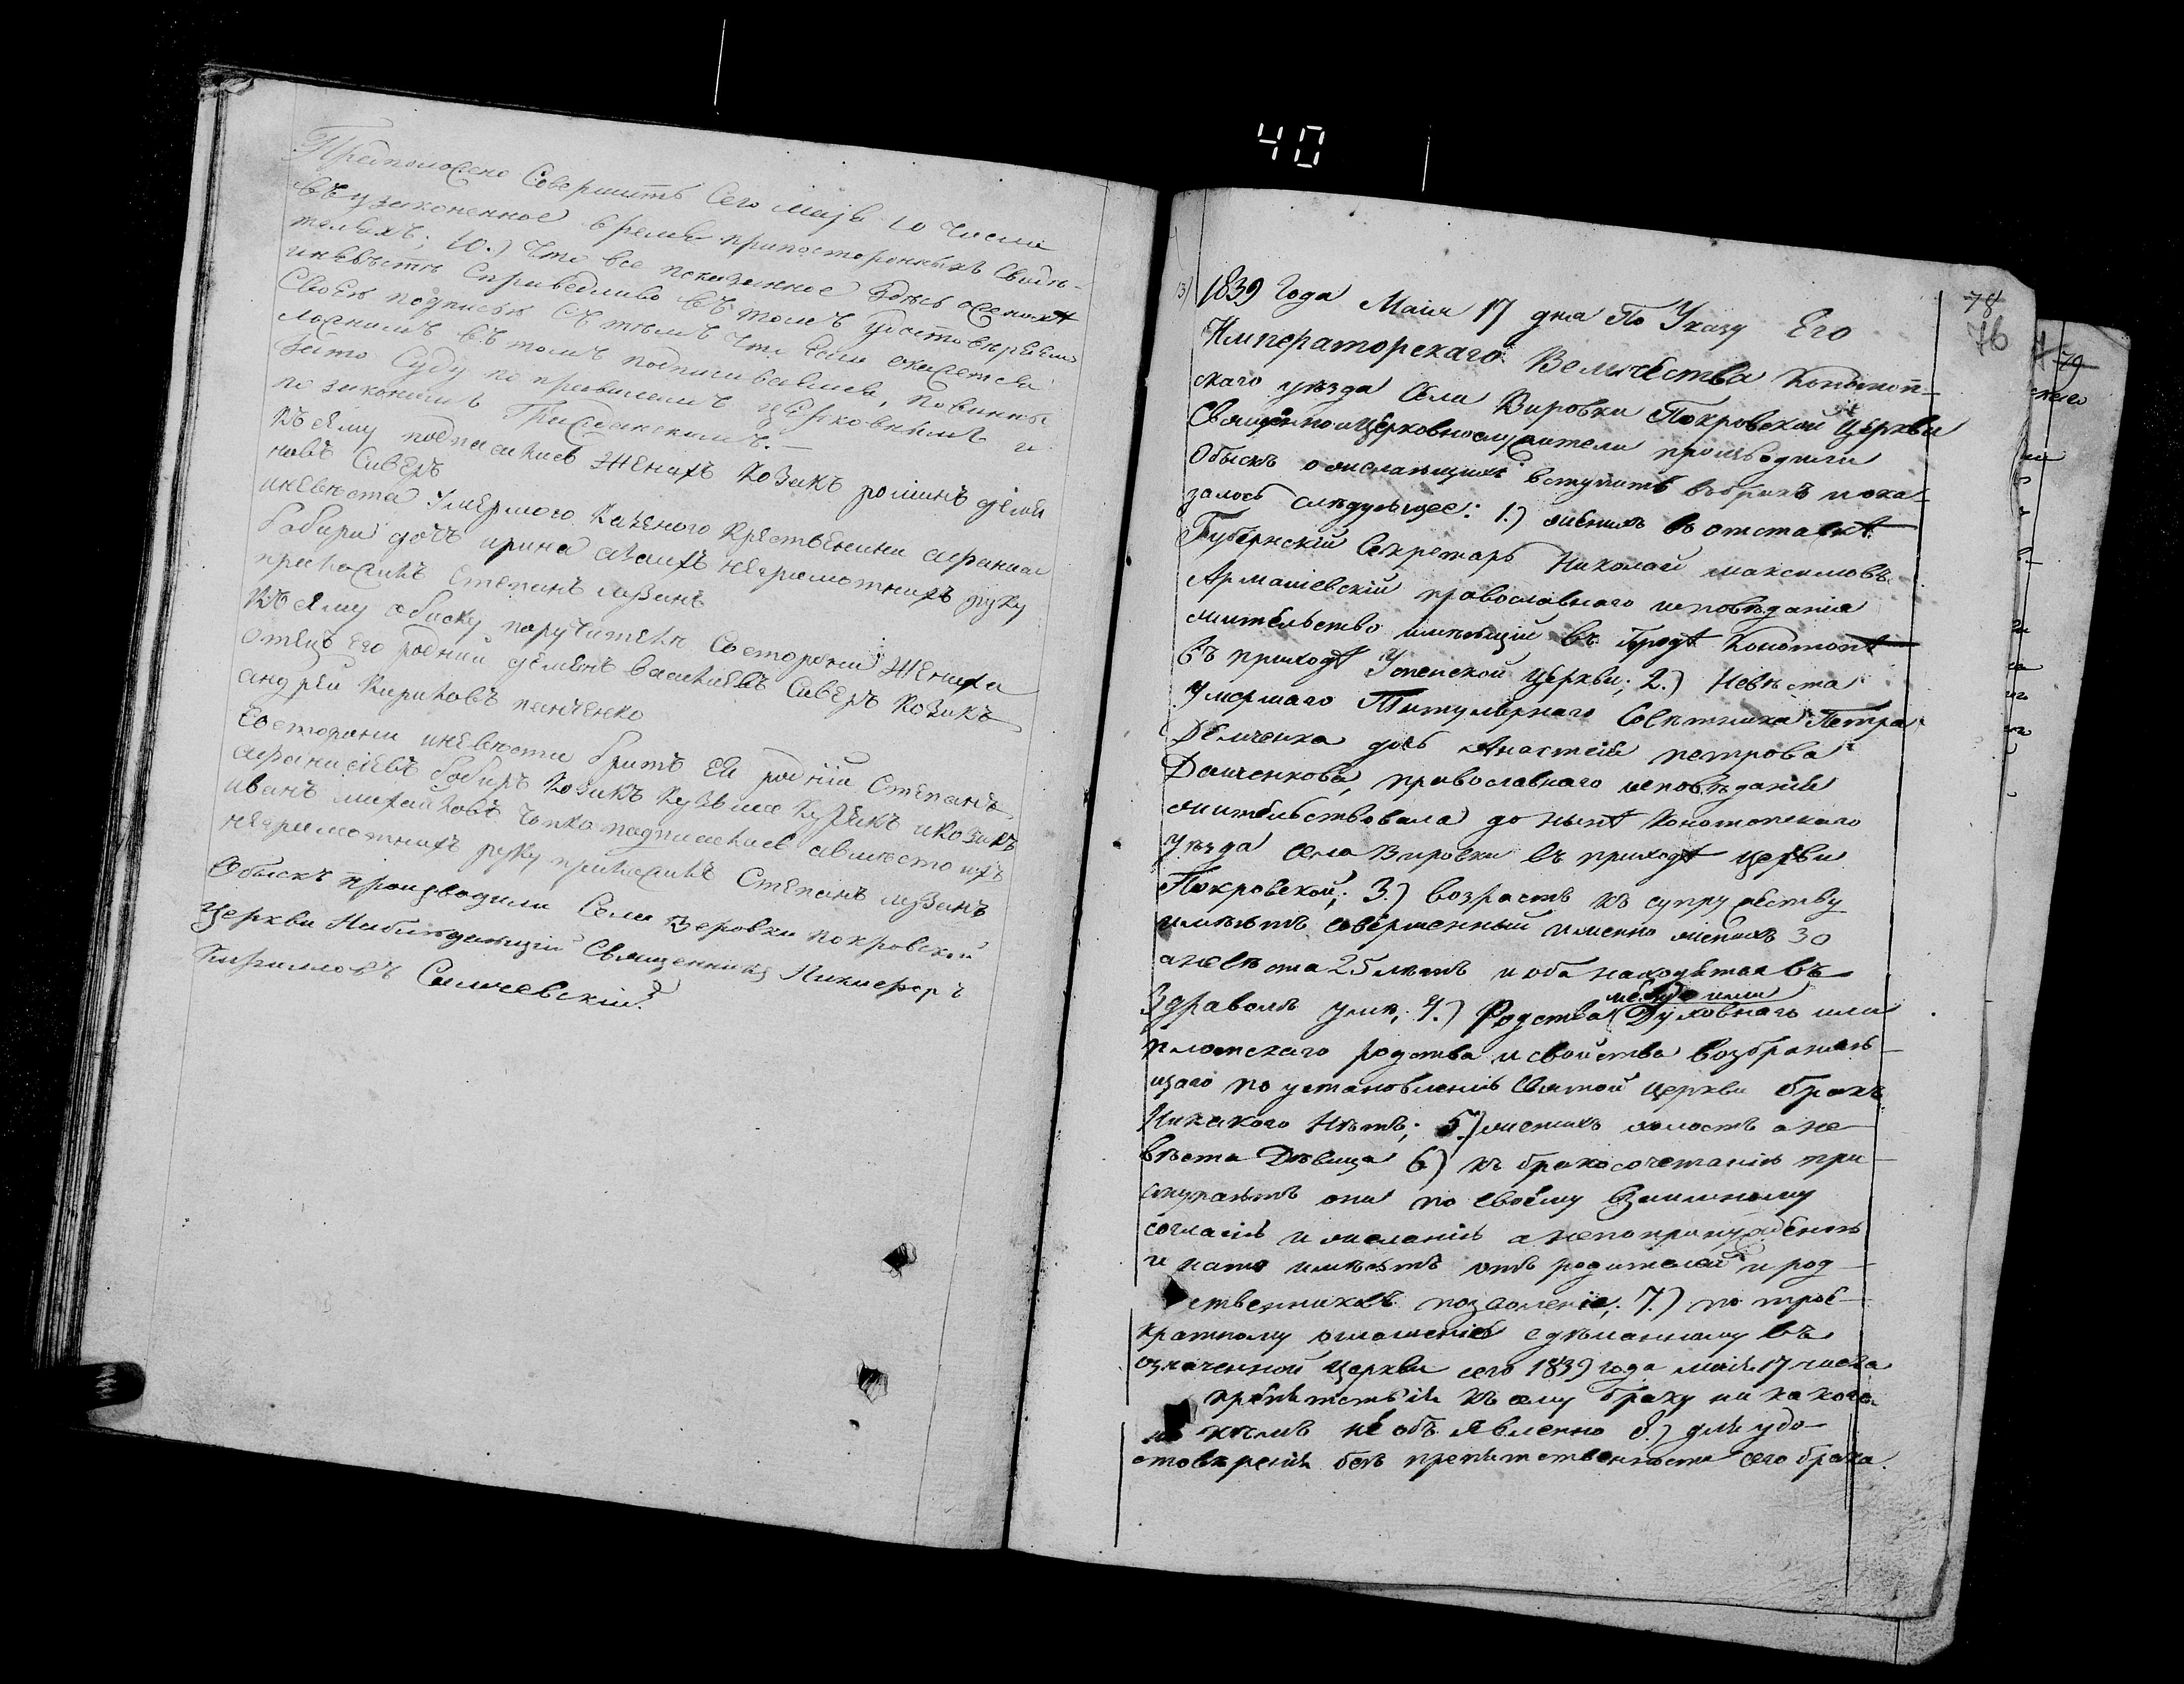 40
Предположено Совершить Сего маія 10 числа
въ узаконенное время при постороннихъ свидѣ-
теляхъ; 10.) Что все показанное здѣсь о женихѣ
и невѣстѣ Справедливо въ томъ удостовѣряемъ
Своею подписью съ тѣмъ что если окажется
ложнымъ въ томъ подписавшіеся, повинны
за то Суду по правиламъ церковнымъ и
по законамъ Гражданскимъ.
Къ сему подписались Женихъ Козакъ
новъ Сиверъ
и невѣста Умершого Казеного Крестьянина афанасія
бобиря дочъ ирина а за ихъ неграмотнихъ руку
приложилъ Степанъ
Къ сему обыску поручители Со сторони Жениха
отецъ Его родний Деменъ василіевъ Сиверъ Козакъ
андрей Кириловъ
Со сторони невести братъ Ей родній Степанъ
афанасіевъ бобиръ Козакъ Кузьма и козакъ
иванъ михайловъ подписались а вместо ихъ
неграмотнихъ руку приложилъ Степанъ
Обыскъ производили Села Веровки покровской
церкви Наблюдающій Священникъ Никифоръ
Кирилловъ
13)
1839 Года Маія 17 дня По Указу Его
Императорскаго Величества Конотоп-
скаго уѣзда Села Вировки Покровской Церкви
Священноицерковнослужители производили
Обыскъ о желающихъ вступить въ бракъ и ока-
залось слѣдующее: 1.) женихъ въ отставкѣ
Губернскій Секретарь Николай максимовъ
Армашевскій православнаго исповѣданія
жительство имѣющій въ Городѣ Конотопѣ
въ приходѣ Успенской Церкви; 2.) Невѣста
умершаго Титулярнаго Совѣтника Петра
Демченка дочь Анастасія петрова
Демченкова, православнаго исповѣданія
жительствовала до нынѣ Конотопскаго
уѣзда села Вировки въ приходѣ церкви
Покровской; 3.) возрастъ къ супружеству
имѣютъ совершенный именно женихъ 30
а невѣста 25 лѣтъ и оба находятся въ
Здравомъ умѣ; 4.) Родства между ими Духовнаго или
плотскаго родства и свойства возбраняю-
щаго по установленію Святой Церкви бракъ
Никакого Нѣтъ; 5.) женихъ холостъ а не-
вѣста Дѣвица 6.) къ бракосочетанію при-
ступаютъ они по своему Взаимному
согласію и желанію а не по принужденію
и на то имѣютъ отъ родителей и род-
ственниковъ позволеніе; 7.) по трое-
кратному оглашенію сдѣланному въ
означенной Церкви сего 1839 года маія 17 числа
препятствія къ сему браку ни какого
ни кѣмъ не объявленно 8.) для удо-
стовѣренія безъ препятственности сего брака
78
76
79